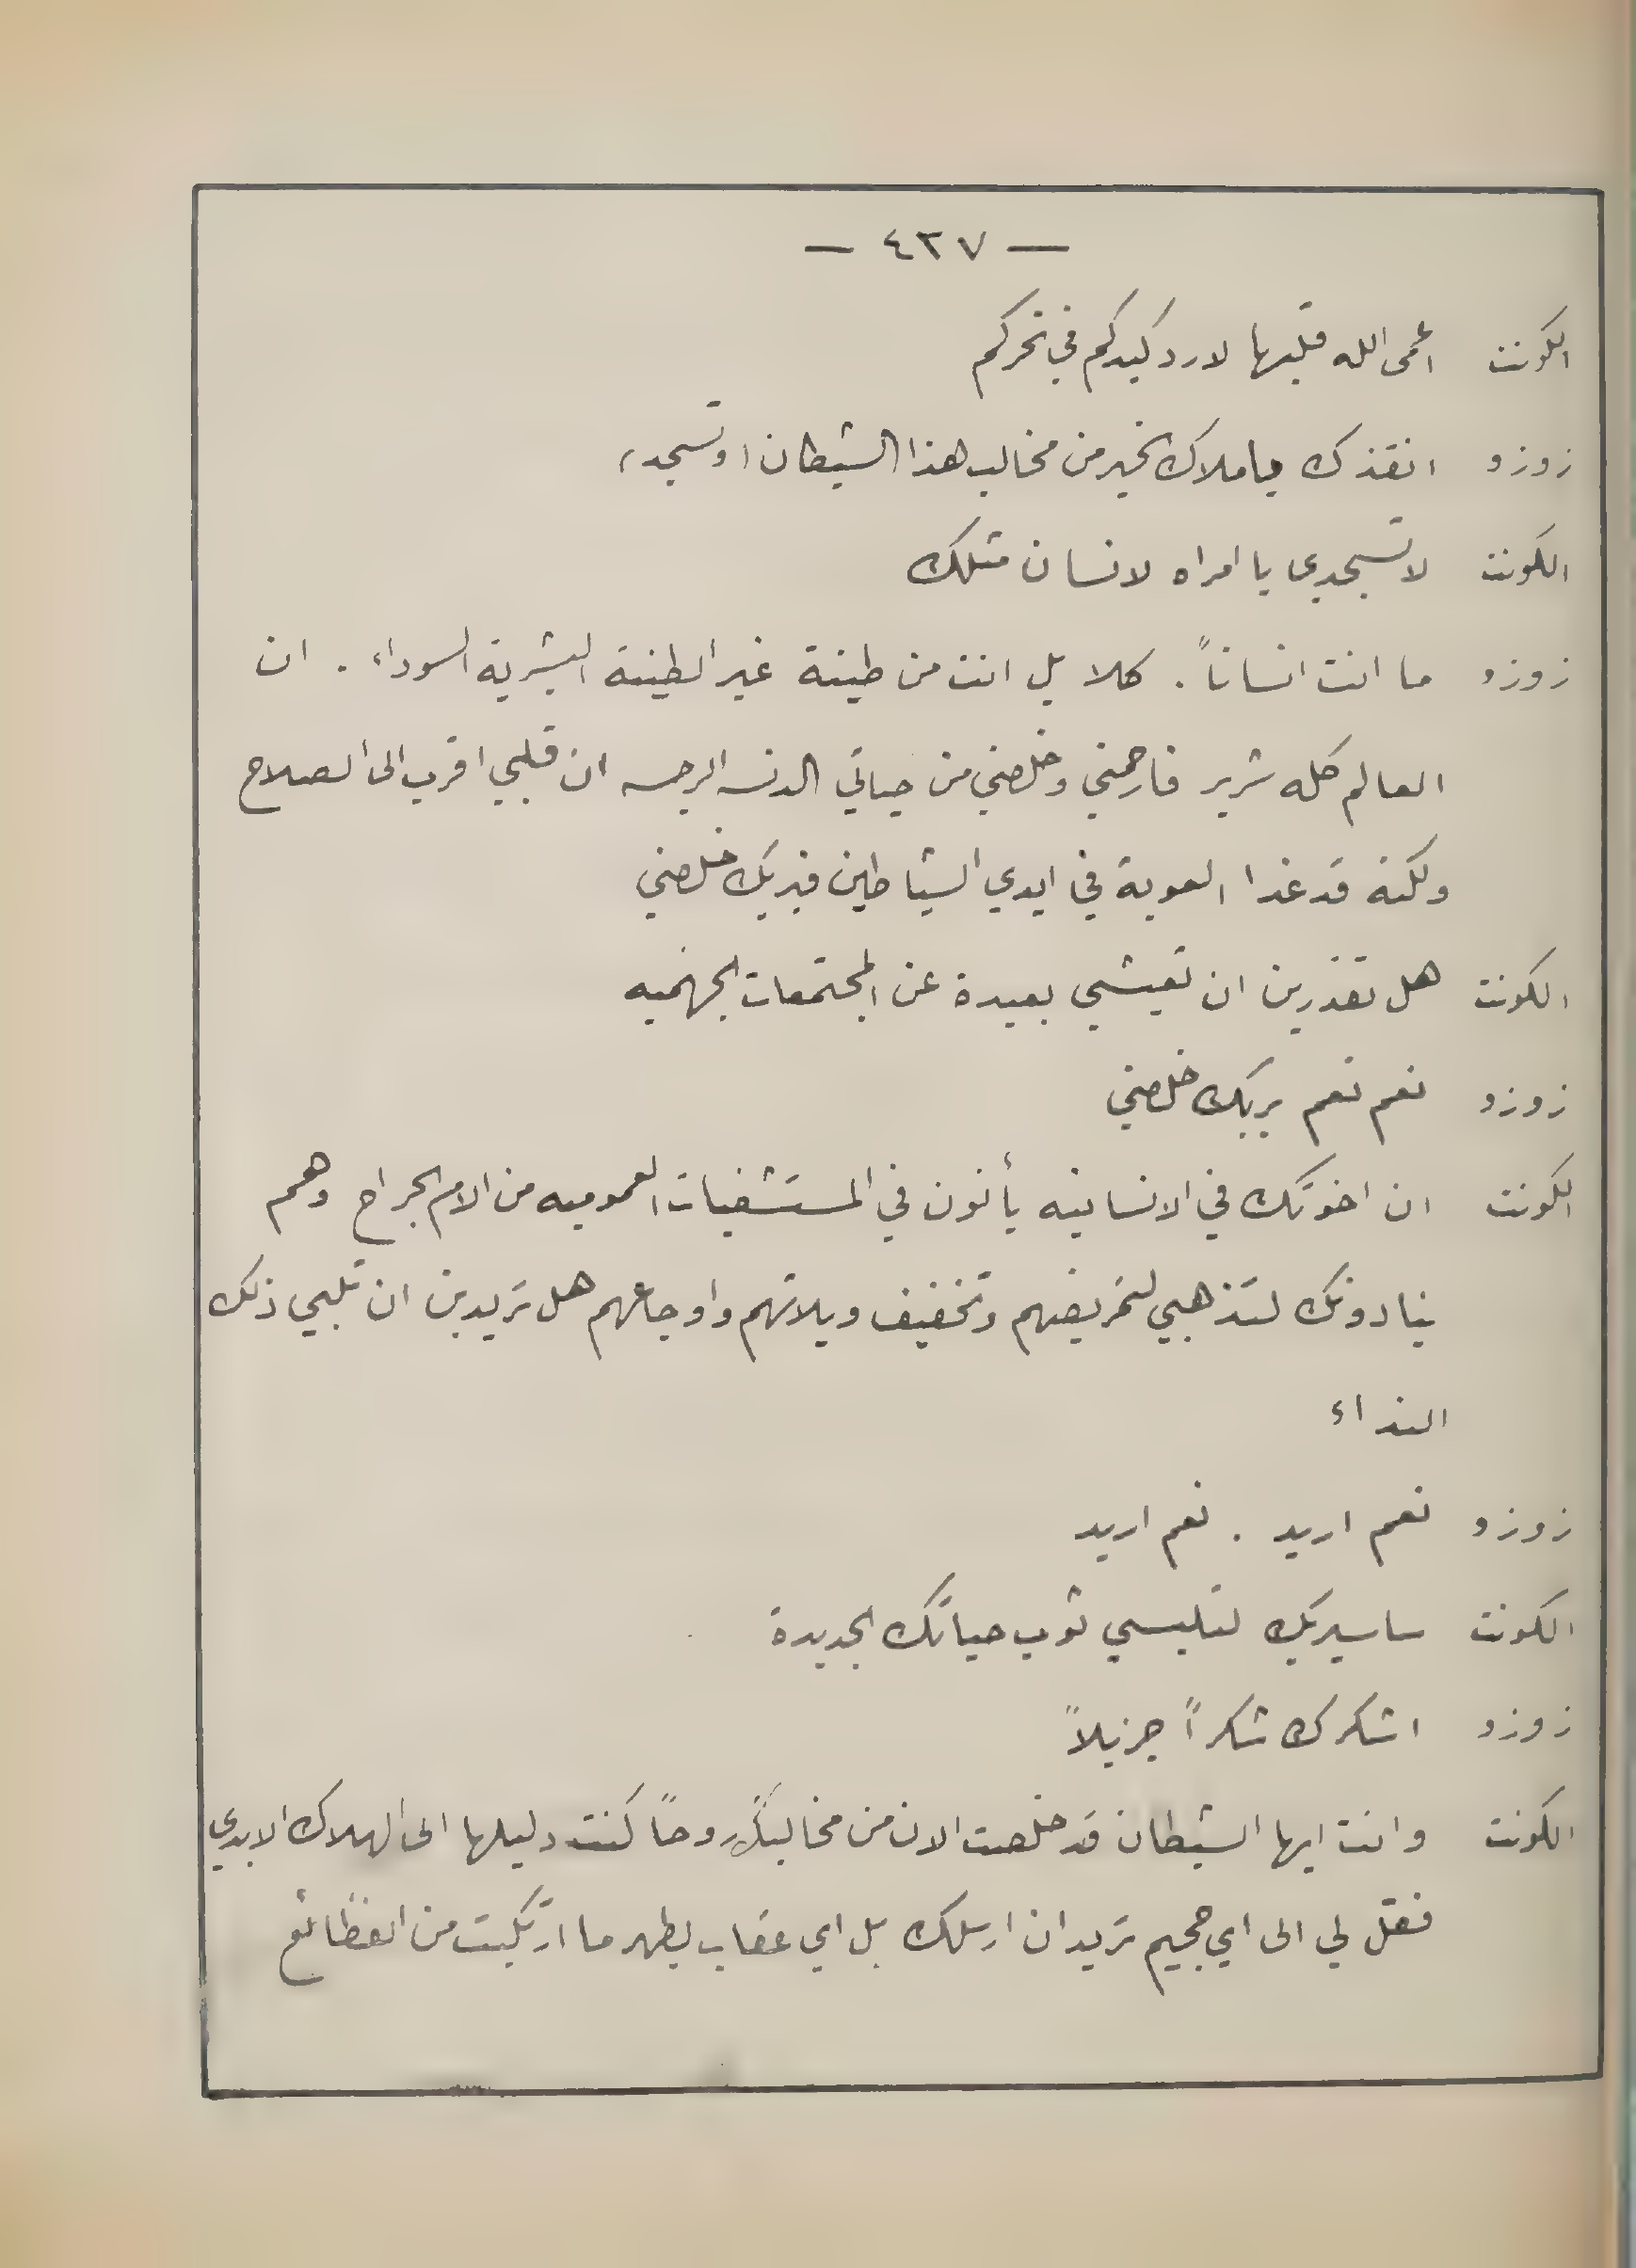 — ٤٣٧ —
الكونت اعمى الله قلبها لارد كيدكم في نحركم
زوزو انقذك ياملاك الخير من مخالب هذا الشيطان (وتسجد)
الكونت لا تسجدي يا امراه لانسان مثلك
زوزو ما انت انساناً . كلا بل انت من طينة غير الطينة البشرية السوداء . ان
العالم كله شرير فارحمني وخلصني من حياتي الدنسه الرجسه ان قلبي اقرب الى الصلاح
ولكنه قد غدا العوبة في ايدي الشياطين فبربك خلصني
الكونت هل تقدرين ان تعيشي بعيدة عن المجتمعات الجهنميه
زوزو نعم نعم بربك خلصني
الكونت ان اخوتك في الانسانيه يأنون في المستشفيات العموميه من الام الجراح وهم
ينادونك لتذهبي لتمريضهم وتخفيف ويلاتهم واوجاعهم هل تريدين ان تلبي ذلك
النداء
زوزو نعم اريد . نعم اريد
الكونت ساسيربك لتلبسي ثوب حياتك الجديدة
زوزو اشكرك شكراً جزيلاً
الكونت وانت ايها الشيطان قد خلصت الان من مخالبك روحاً كنت دليلها الى الهلاك الابدي
فقل لي الى اي جحيم تريد ان ارسلك بل اي عقاب يطهر ما ارتكبت من الفظائع